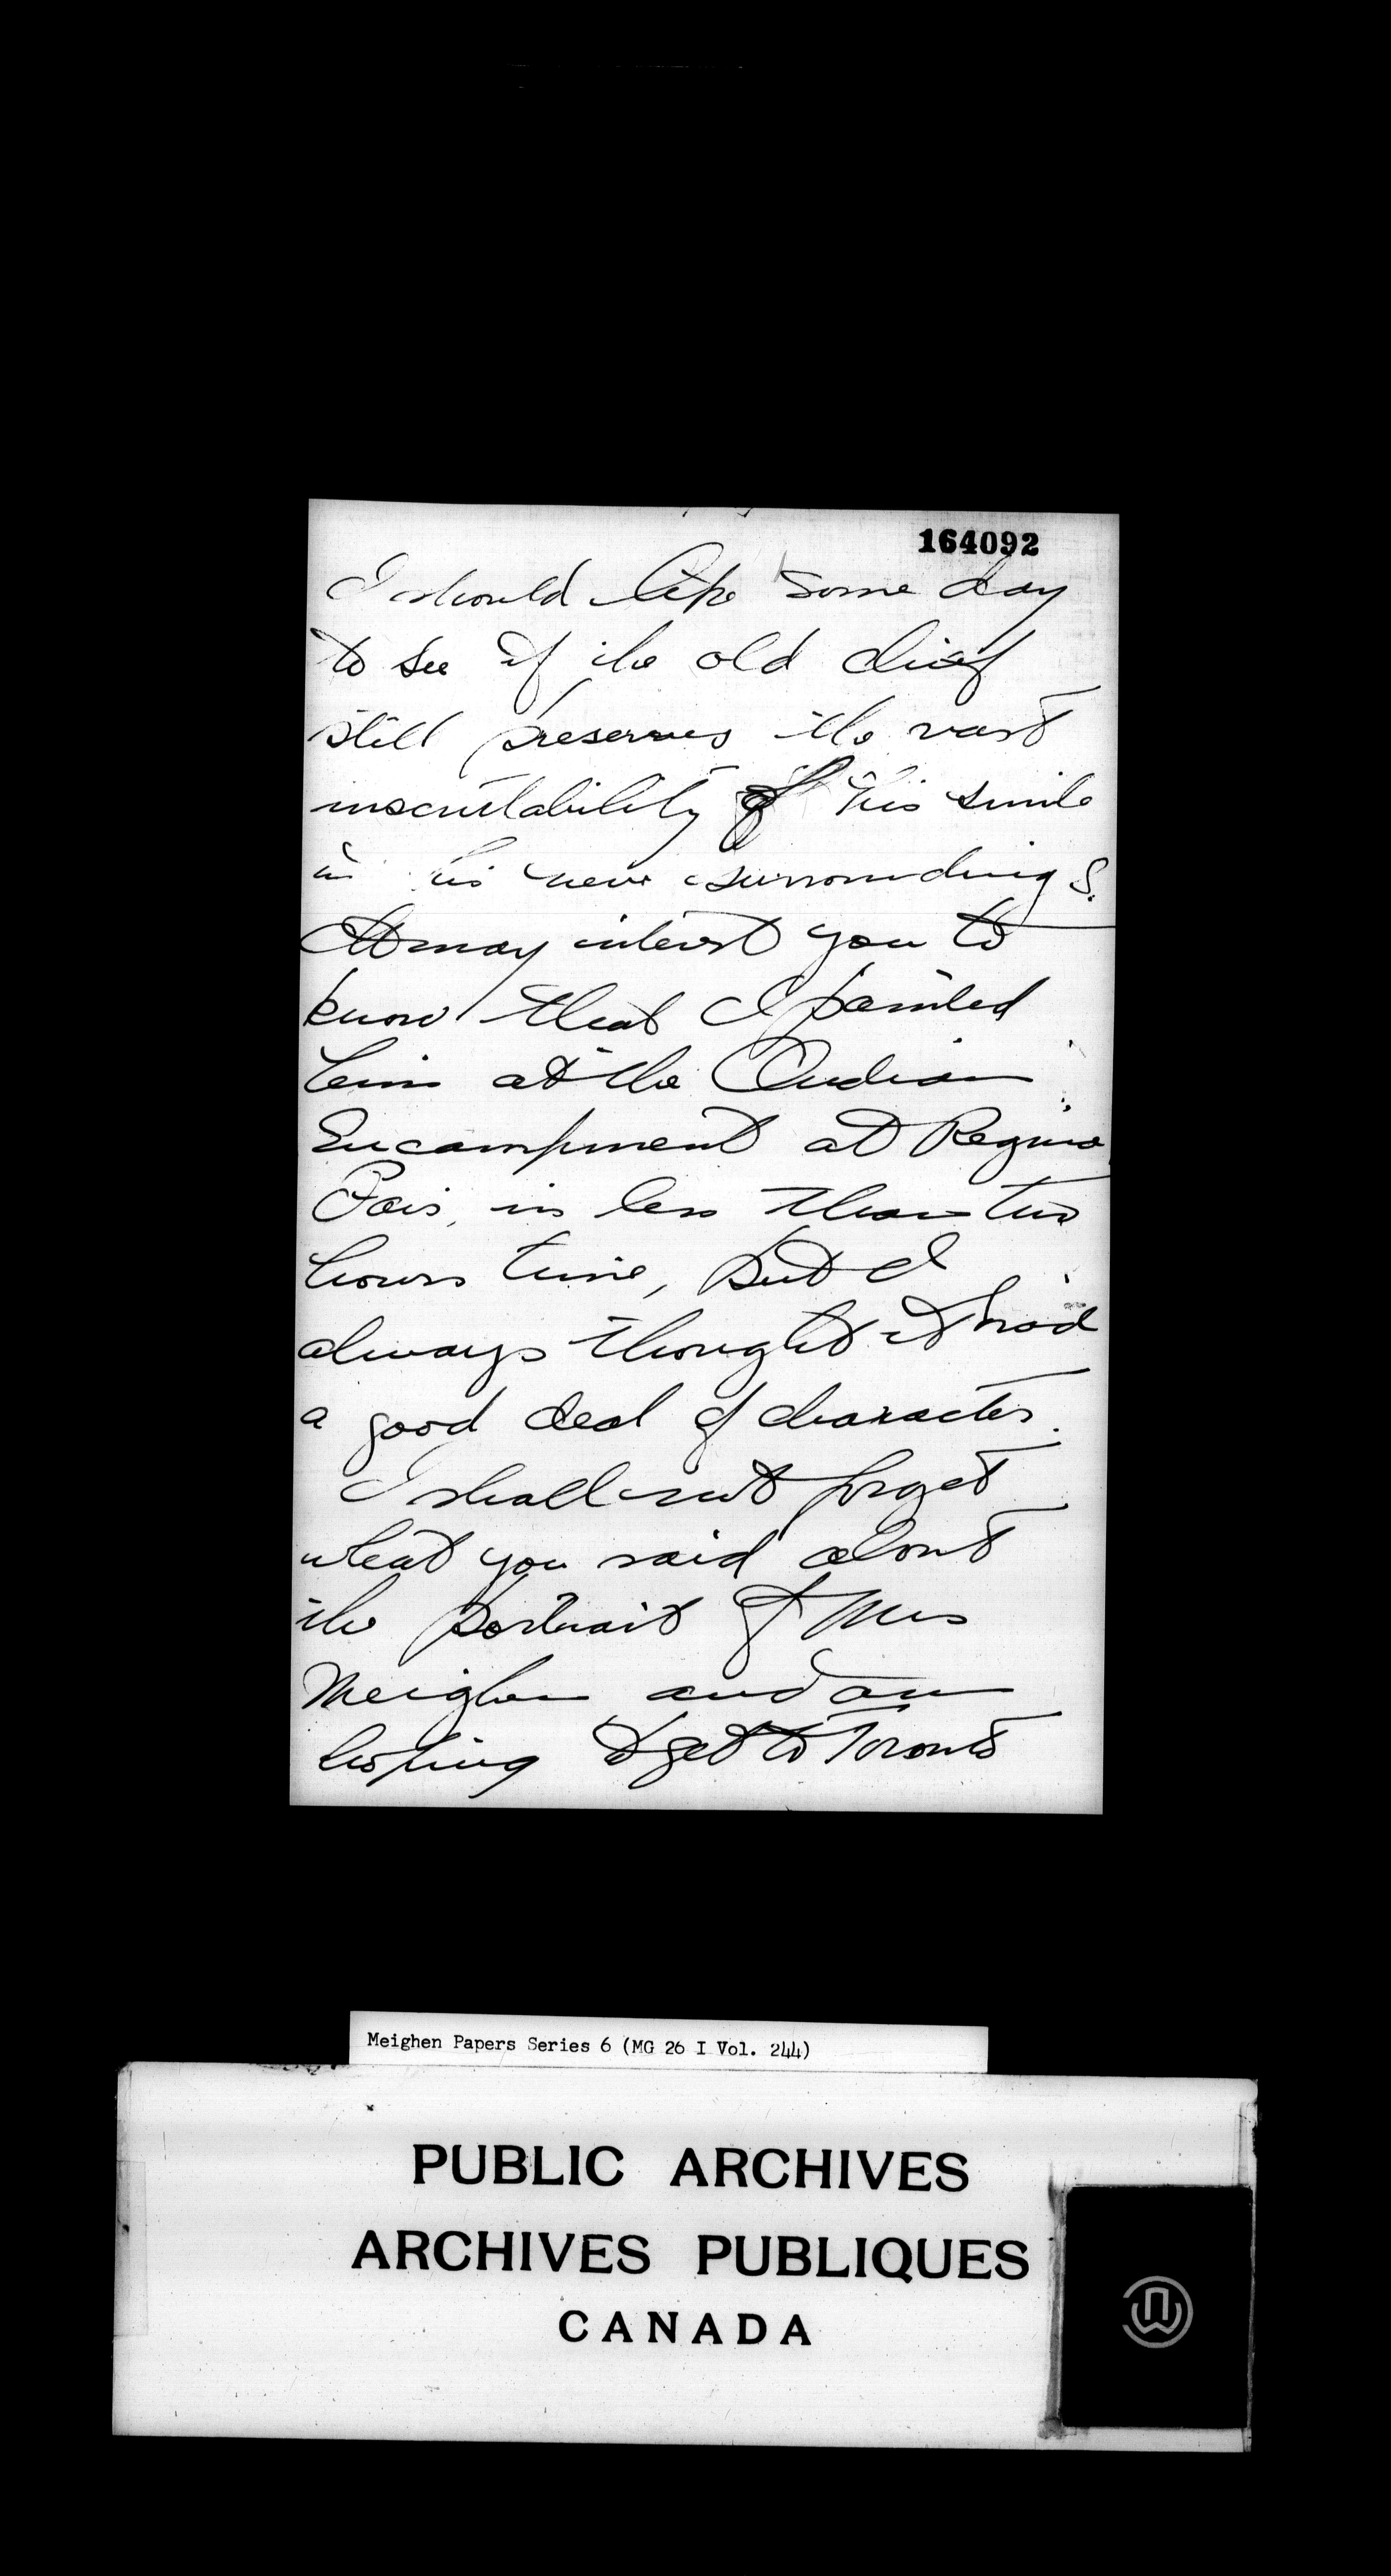 164092
I should like some day
to see if the old chief
still preserves the vast
inscrutability of his smile
in his new surroundings.
It may interest you to
know that I painted
him at the Indian
Encampment at Regina
Fair, in less than two
hours time, but I
always thought it had
a good deal of character.
I shall not forget
what you said about
the portrait of Mrs
Meighen and am
hoping to get to Toronto
Meighen Papers Series 6 (MG 26 I Vol. 244)
PUBLIC ARCHIVES
ARCHIVES PUBLIQUES
CANADA